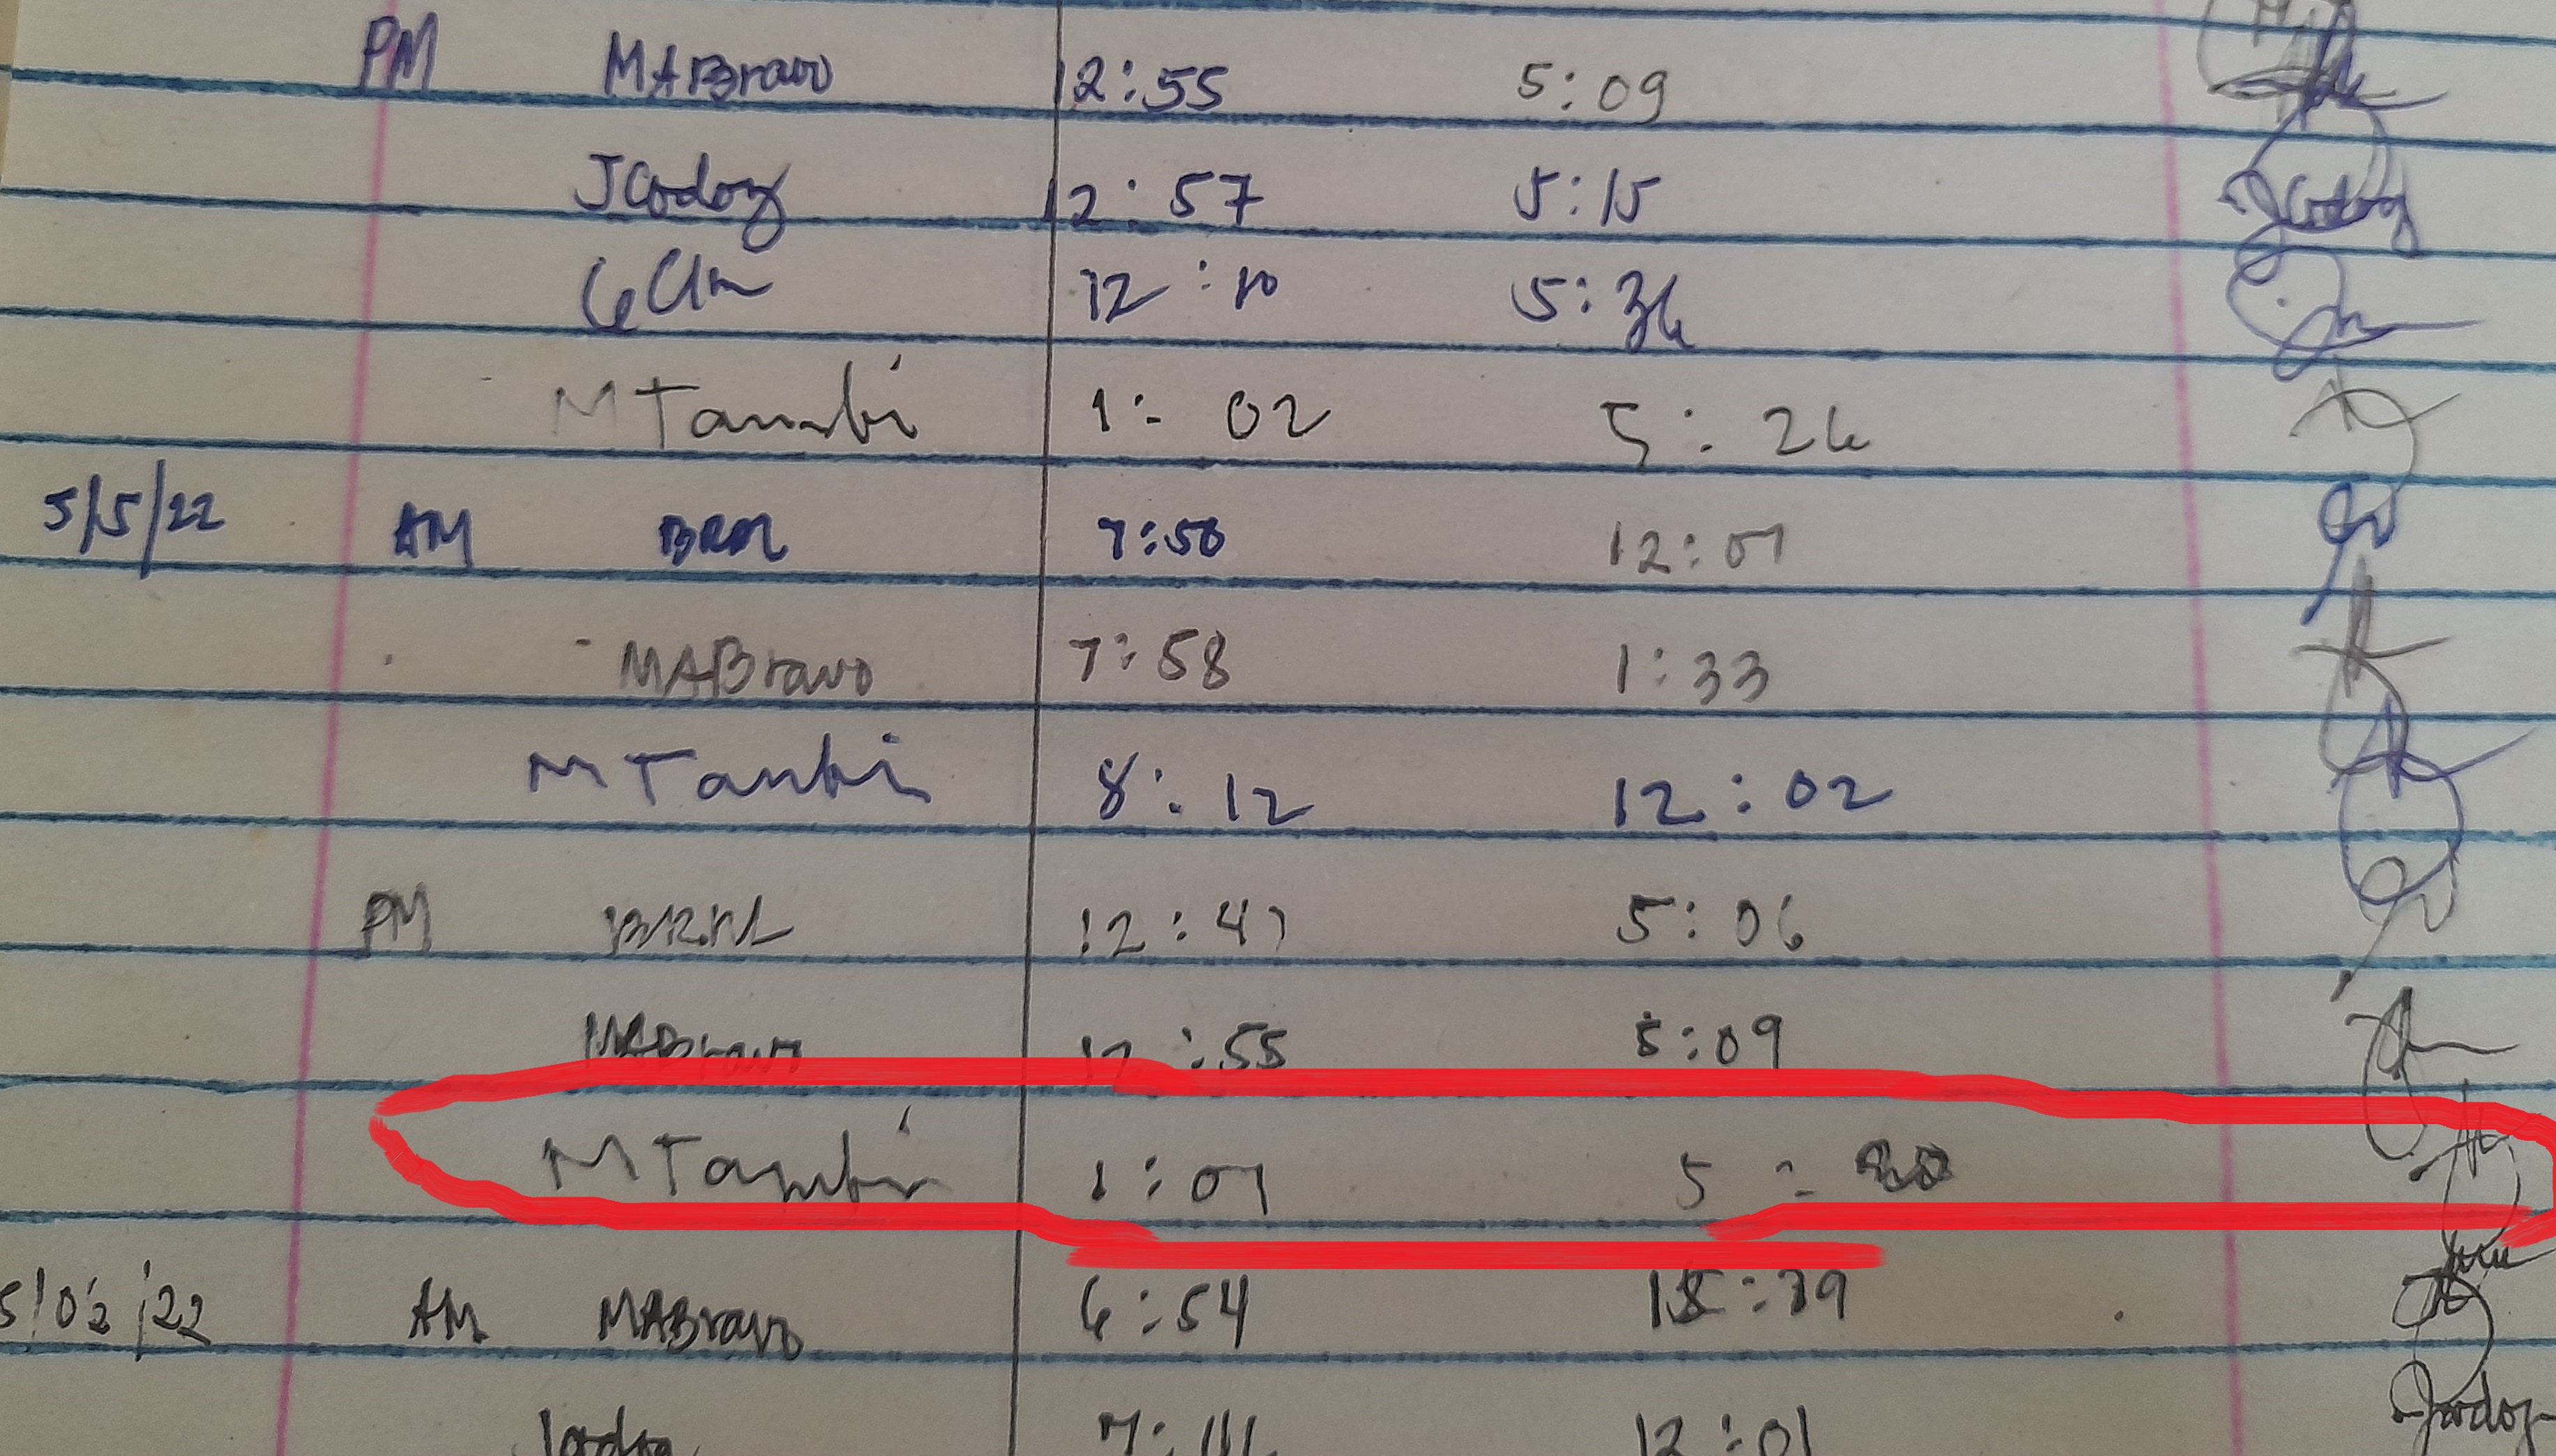 PM MABravo 12:55 5:09
JCodoy 12:57 5:15 JCodoy
12:10 5:36
M Tambi 1:02 5:26
5/5/22 AM BRM 7:50 12:07
MABravo 7:58 1:33
M Tambi 8:12 12:02
PM 12:47 5:06
MABravo 12:55 5:09
M Tambi 1:07 5:
AM MABravo 6:54
12:01